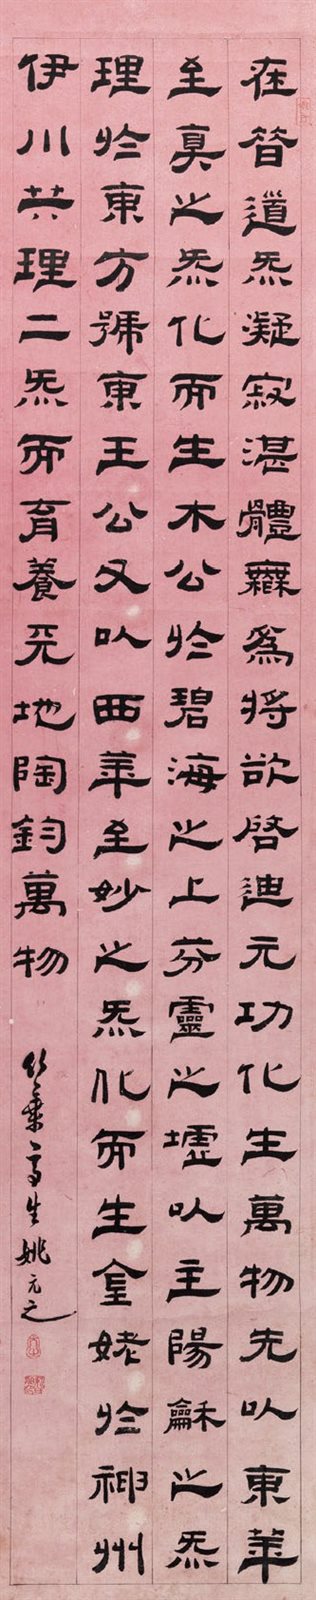 在昔道炁凝寂湛體無爲將欲啓迪元功化生萬物先以東華
至真之炁化而生木公於碧海之上芬靈之墟以主陽龢之炁
理於東方號東王公又以西華至妙之炁化而生金姥於神州
伊川共理二炁而育養天地陶鈞萬物
竹葉亭生姚元之